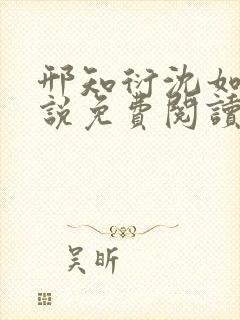 邢知衍沈如
說免費閱讀
吴昕